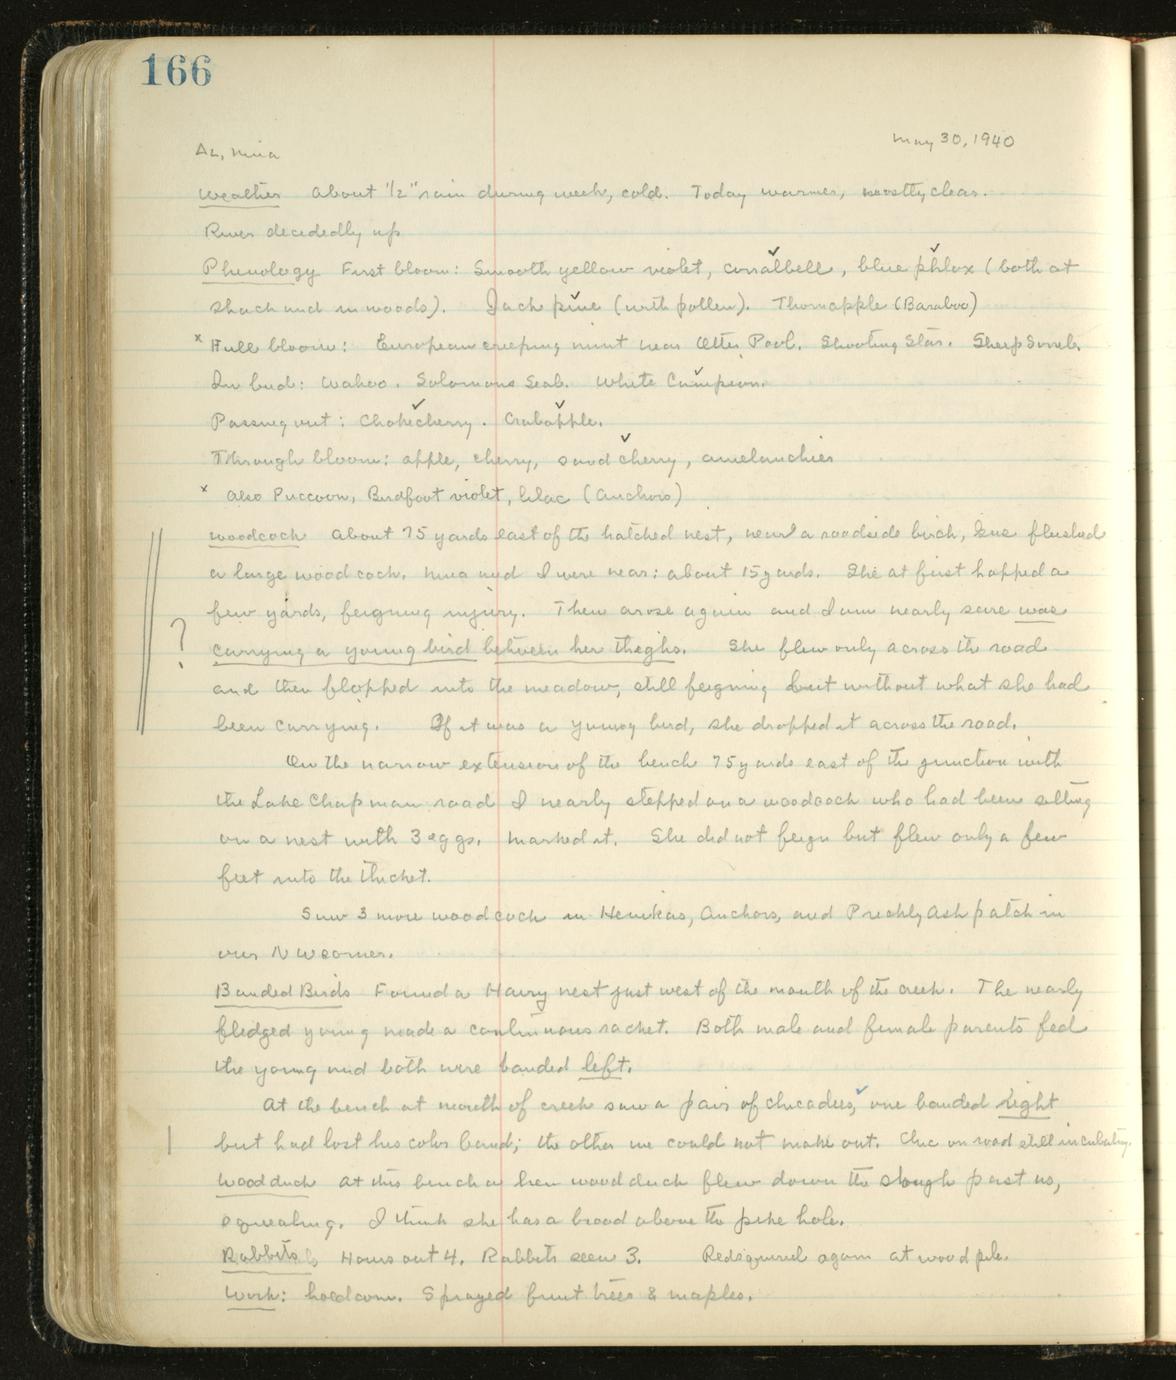 166
May 30, 1940
AL, Mina
Weather About 1/2" rain during week, cold. Today warmer, mostly clear.
River decidedly up
Phenology First bloom: Smooth yellow violet, corralbell, blue phlox (both at
shack and in woods). Jack pine (with pollen). Thornapple (Baraboo)
x Full bloom: European creeping mint near Otter Pool. Shooting Star. Sheep Sorrel.
In bud: Wahoo. Solomons Seal. White Campion.
Passing out: Chokecherry. Crabapple.
Through bloom: apple, cherry, sand cherry, amelanchier
x also Puccoon, Birdfoot violet, lilac (Anchors)
Woodcock About 75 yards east of the hatched nest, near a roadside birch, Gus flushed
a large woodcock. Mina and I were near: about 15 yards. She at first hopped a
few yards, feigning injury. Then arose again and I am nearly sure was
? carrying a young bird between her thighs. She flew only across the road
and then flopped into the meadow, still feigning but without what she had
been carrying. If it was a young bird, she dropped it across the road.
On the narrow extension of the bench 75 yards east of the junction with
the Lake Chapman road I nearly stepped on a woodcock who had been sitting
on a nest with 3 eggs. Marked it. She did not feign but flew only a few
feet into the thicket.
Saw 3 more woodcock in Henikas, Anchors, and Prickly Ash patch in
our NW corner.
Banded Birds Found a Hairy nest just west of the mouth of the creek. The nearly
fledged young made a continuous racket. Both male and female parents fed
the young and both were banded left.
At the bench at mouth of creek saw a pair of chicadees, one banded right
but had lost his color band; the other we could not make out. Chic on road still incubating.
Wood duck At this bench a hen wood duck flew down the slough past us,
squealing. I think she has a brood above the pike hole.
Rabbits Hours out 4. Rabbits seen 3. Redsquirrel again at wood pile.
Work: hoed corn. Sprayed fruit trees & maples.